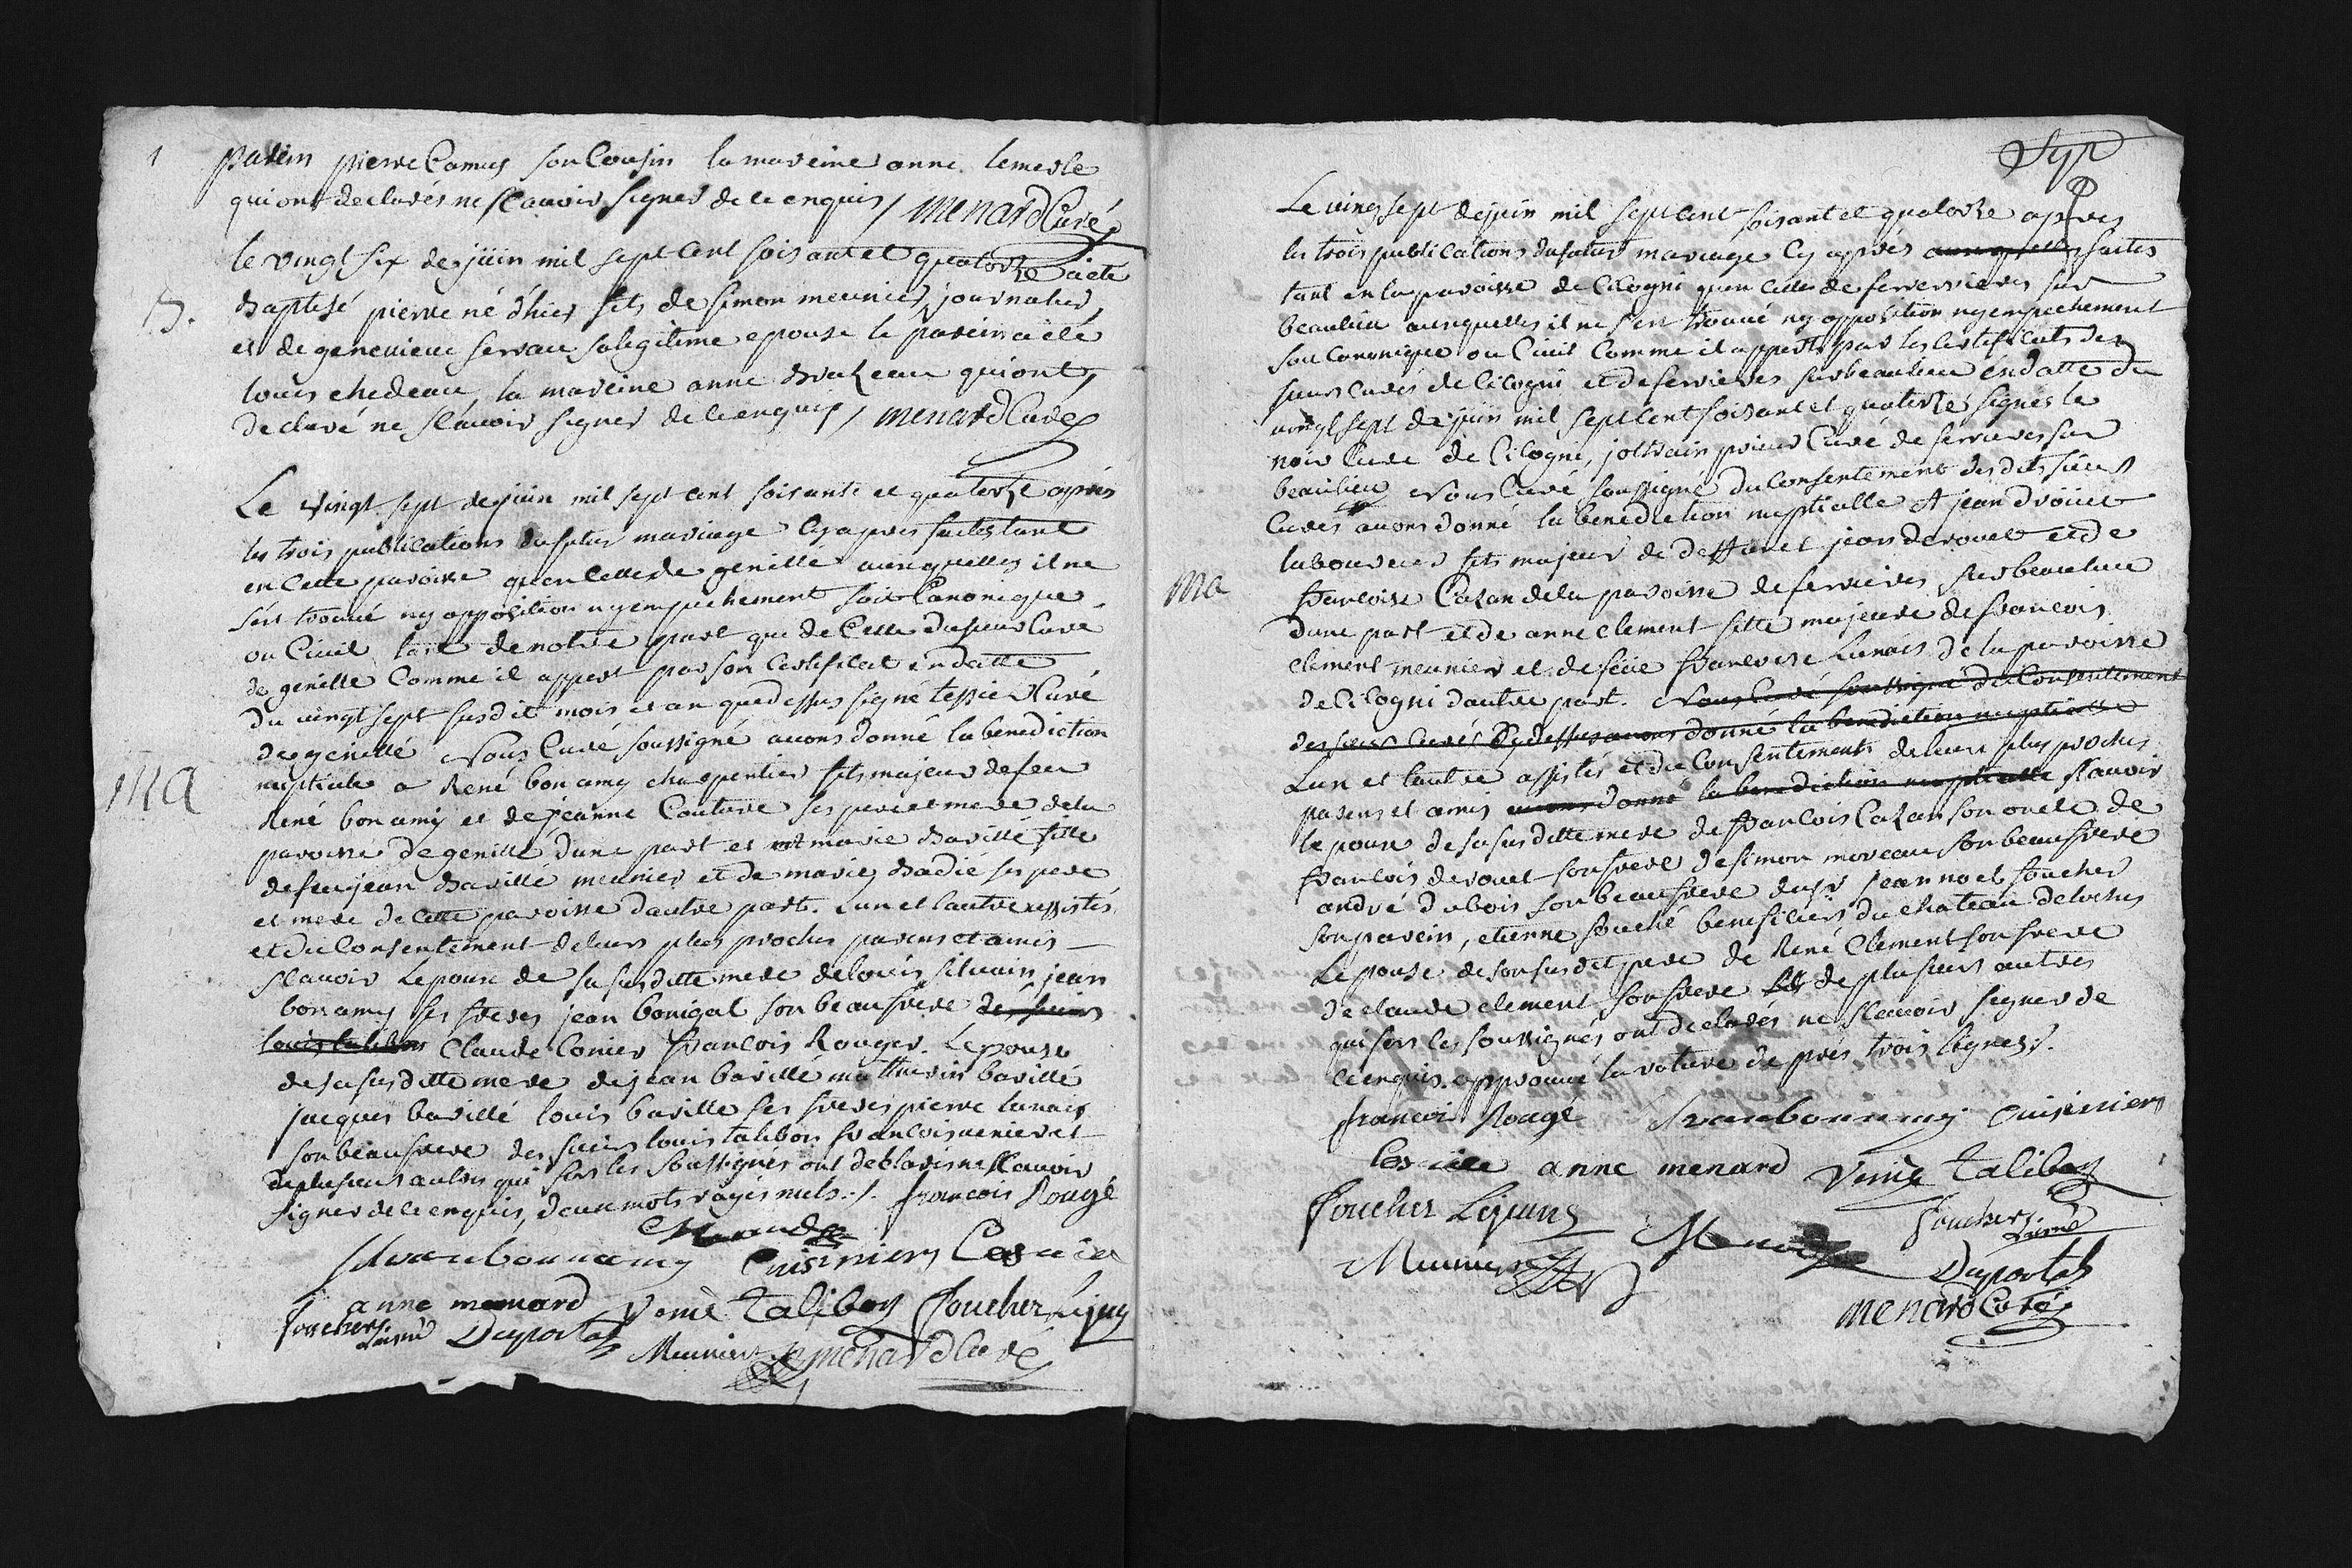 1
parein pierre Camus son Cousin la mareine anne lemesle
qui ont declarés ne scauoir signer de ce enquis / menard Curé
B.
le vingt six de juin mil sept cent soixante et quatorze a ete
baptisé pierre né d'hier fils de simon meunier, journalier,
et de geneuieue serrau sa legitime epouse le parein a eté
louis chedeau, la mareine anne brazeau qui ont
declaré ne scauoir signer de ce enquis / menard Curé
ma
Le vingt sept de juin mil sept cent soixante et quatorze après
les trois publications du futur mariage cy apres faites tant
en cette paroisse qu'en celle de genillé auxquelles il ne
s'est trouué ny opposition ny empechement soit Canonique
ou Ciuil tant de notre part que de Celle du sieur Curé
de genillé Comme il appert par son Certificat en datte
du vingt sept susdit mois et an que dessus signé tessier Curé
de genillé Nous Curé soussigné auons donné la benediction
nuptiale a René bonamy charpentier fils majeur de feu
René bonamy et de jeanne Couture ses pere et mere de la
paroisse de genillé d'une part et marie bavillé fille
de feu jean bavillé meunier et de marie badié ses pere
et mere de cette paroisse dautre part. Lun et lautre assistés
et du Consentement de leurs plus proches parens et amis
scauoir Lepoux de sa susditte mere de louis siluain jean
bonamy ses freres jean bonigal son beaufrere des sieurs
louis talibon Claude Conier francois Rouger. Lepouse
de sa susditte mere de jean bavillé mathurin bavillé
jacques bavillé louis bavillé ses freres pierre lunais
son beaufrere des sieurs louis talibon francois uenier et
de plusieurs autres qui fors les soussignés ont declarés ne scauoir
signer de ce enquis, deux mots rayés nuls ./. francois Rougé
siluanbonnamy Cuisiniers
anne menard Venié Talibon Foucher Lejeune
Fouchers Lainé Duportal Meunier menard Curé
Le vingt sept de juin mil sept cent soixante et quatorze apres
les trois publications du futur mariage cy après auxquelles faites
tant en la paroisse de Cicogni qu'en celle de ferrieres sur
beaulieu auxquelles il ne s'est trouué ny opposition ny empechement
soit canonique ou Ciuil Comme il appert par les Certificats des
sieurs curés de Cicogni et de ferrieres sur beaulieu en datte du
vingt sept de juin mil sept cent soixante et quatorze signés le
noir Curé de Cicogni, joltrain prieur Curé de ferrieres sur
beaulieu Nous Curé soussigné du Consentement des dits sieurs
Curés auons donné la benediction nuptialle A jean drouet
ma
laboureur fils majeur de deffunt jean derouet et de
francoise Cazan de la paroisse de ferrieres sur beaulieu
dune part et de anne clement fille majeure de francois
clement meunier et de feüe francoise Lunais de la paroisse
de Cicogni dautre part. Nous Curé soussigné du Consentement
des sieurs Curés cy dessus auons donné la benediction nuptialle
Lun et lautre assistés et du Consentement de leurs plus proches
parens et amis auons donné la benediction nuptialle scauoir
lepoux de sa susditte mere de francois Cazan son oncle de
francois derouet son frere de simon moreau son beaufrere
andré dubois son beaufrere du sr jean noel foucher
son parein, etienne fouché beneficier du chateau de loches
Lepouse de son susdit pere de René Clement son frere
de claude clement son frere de plusieurs autres
qui fors les soussignés ont declarés ne scauoir signer de
ce enquis. approuué la rature de près trois lignes ./.
francois Rougé siluanbonnamy Cuisiniers
anne menard Venié Talibon
Foucher Lejeune Fouchers Lainé
Meunier Duportal
menard Curé